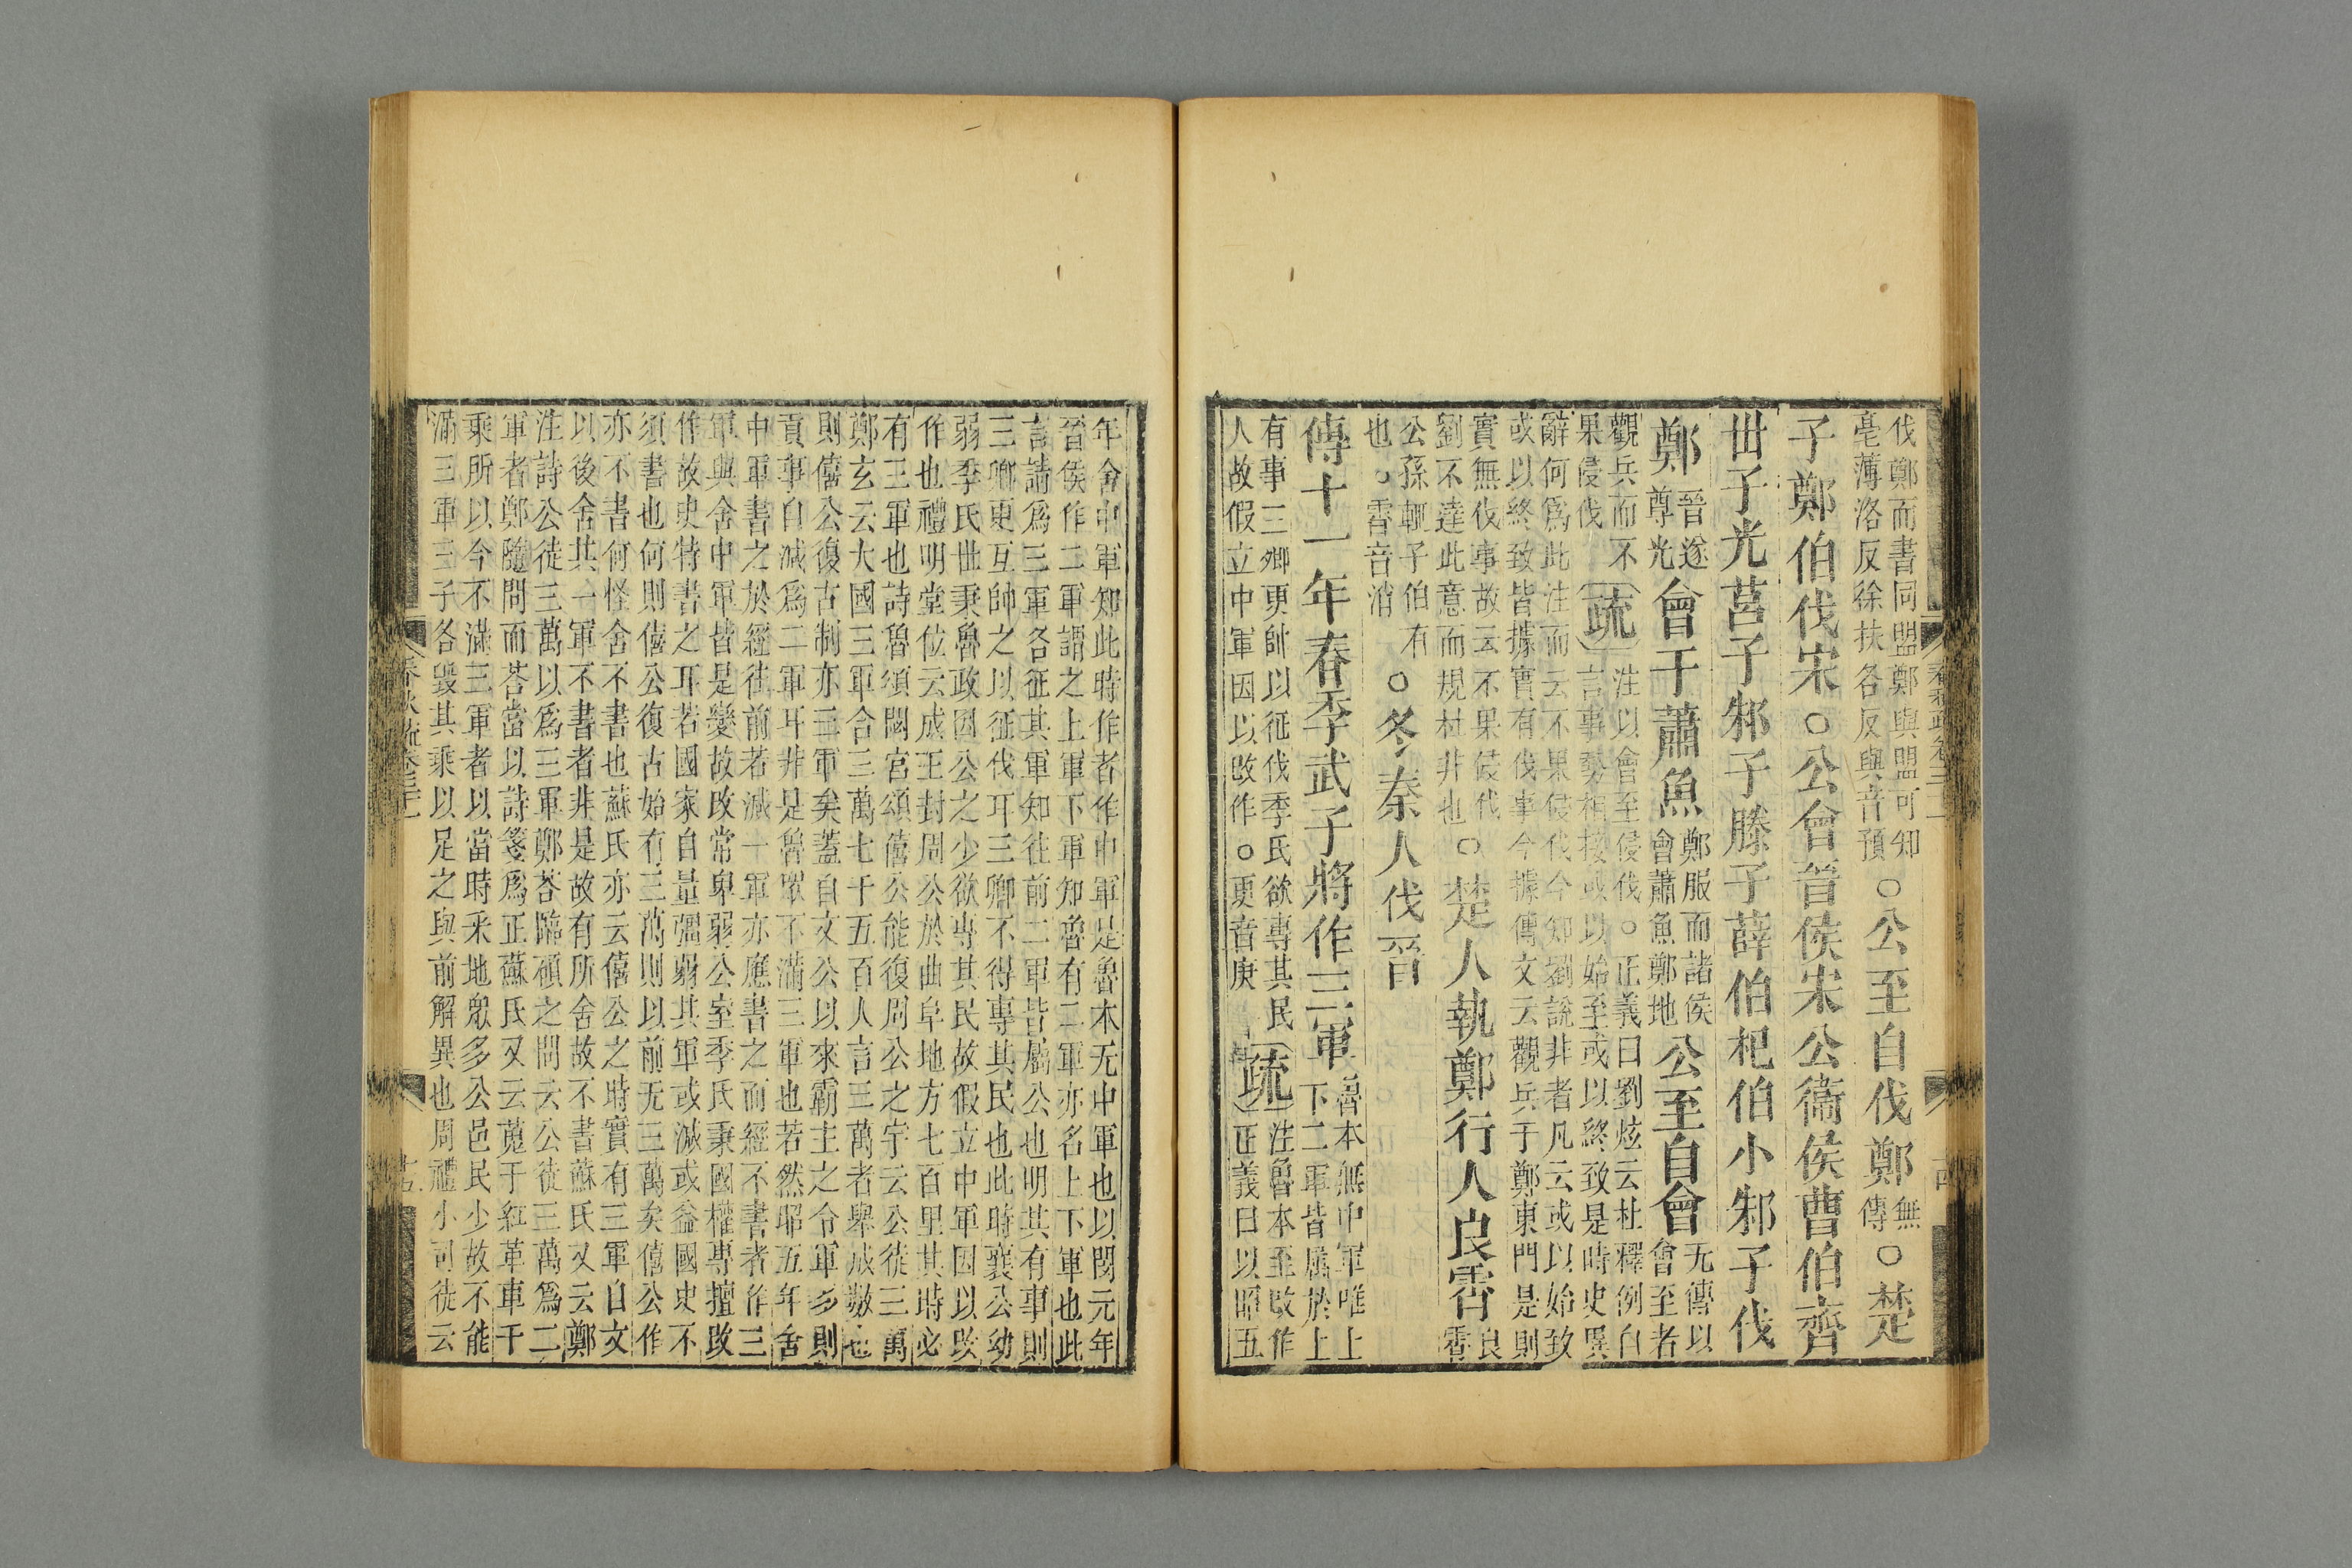 伐鄭而書同盟鄭與盟可知
亳薄洛反徐扶各反與音預
○公至自伐鄭
無
傳
○楚
子鄭伯伐宋○公會晉侯宋公衞侯曹伯齊
世子光莒子邾子滕子薛伯杞伯小邾子伐
鄭
晉遂
尊光
會于蕭魚
鄭服而諸侯
會蕭魚鄭地
公至自會
无傳以
會至者
觀兵而不
果侵伐
疏
注以會至侵伐○正義曰劉炫云杜釋例自
言事勢相接或以始至或以終致是時史異
辭何爲此注而云不果侵伐今知劉說非者凡云或以始致
或以終致皆據實有伐事今據傳文云觀兵于鄭東門是則
實無伐事故云不果侵伐
劉不達此意而規杜非也
○楚人執鄭行人良霄
良
霄
公孫輒子伯有
也○霄音消
○冬秦人伐晉
傳十一年春季武子將作三軍
魯本無中軍唯上
下二軍皆屬於上
有事三卿更帥以征伐季氏欲專其民
人故假立中軍因以改作○更音庚
疏
注魯本至改作
正義曰以昭五
年舍中軍知此時作者作中軍是魯本无中軍也以閔元年
晉侯作二軍謂之上軍下軍知魯有二軍亦名上下軍也此
言請爲三軍各征其軍知往前二軍皆屬公也明其有事則
三卿更互帥之以征伐耳三卿不得專其民也此時襄公幼
弱季氏世秉魯政因公之少欲專其民故假立中軍因以改
作也禮明堂位云成王封周公於曲阜地方七百里其時必
有三軍也詩魯頌閟宮頌僖公能復周公之宇云公徒三萬
鄭玄云大國三軍合三萬七千五百人言三萬者舉成數也
則僖公復古制亦三軍矣蓋自文公以來霸主之令軍多則
貢事自減爲二軍耳非是魯眾不滿三軍也若然昭五年舍
中軍書之於經往前若減一軍亦應書之而經不書者作三
軍與舍中軍皆是變故改常卑弱公室季氏秉國權專擅改
作故史特書之耳若國家自量彊弱其軍或減或益國史不
須書也何則僖公復古始有三萬則以前无三萬矣僖公作
亦不書何怪舍不書也蘇氏亦云僖公之時實有三軍自文
以後舍其一軍不書者非是故有所舍故不書蘇氏又云鄭
注詩公徒三萬以爲三軍鄭荅臨碩之問云公徒三萬爲二
軍者鄭隨問而荅當以詩箋爲正蘇氏又云蒐于紅革車千
乘所以今不滿三軍者以當時采地眾多公邑民少故不能
滿三軍三子各毀其乘以足之與前解異也周禮小司徒云